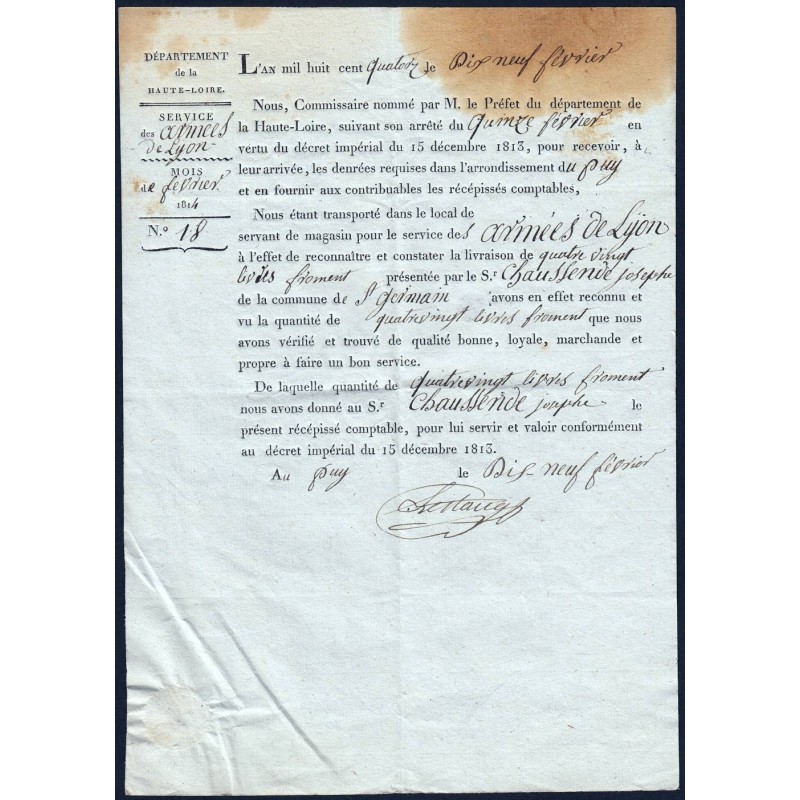 DÉPARTEMENT
de la
HAUTE-LOIRE.
SERVICE
des armées
de Lyon
MOIS
de février
1814
N.º 18
L'AN mil huit cent quatorz le Dix neuf février
Nous, Commissaire nommé par M. le Préfet du département de
la Haute-Loire, suivant son arrêté du Quinze février en
vertu du décret impérial du 15 décembre 1813, pour recevoir, à
leur arrivée, les denrées requises dans l'arrondissement du puy
et en fournir aux contribuables les récépissés comptables,
Nous étant transporté dans le local de
servant de magasin pour le service des armées de Lyon
à l'effet de reconnaître et constater la livraison de quatre vingt
livres froment présentée par le S.r Chaussende josephe
de la commune de St germain avons en effet reconnu et
vu la quantité de quatrevingt livres froment que nous
avons vérifié et trouvé de qualité bonne, loyale, marchande et
propre à faire un bon service.
De laquelle quantité de quatrevingt livres froment
nous avons donné au S.r Chaussende josephe le
présent récépissé comptable, pour lui servir et valoir conformément
au décret impérial du 15 décembre 1813.
Au puy le Dix-neuf février